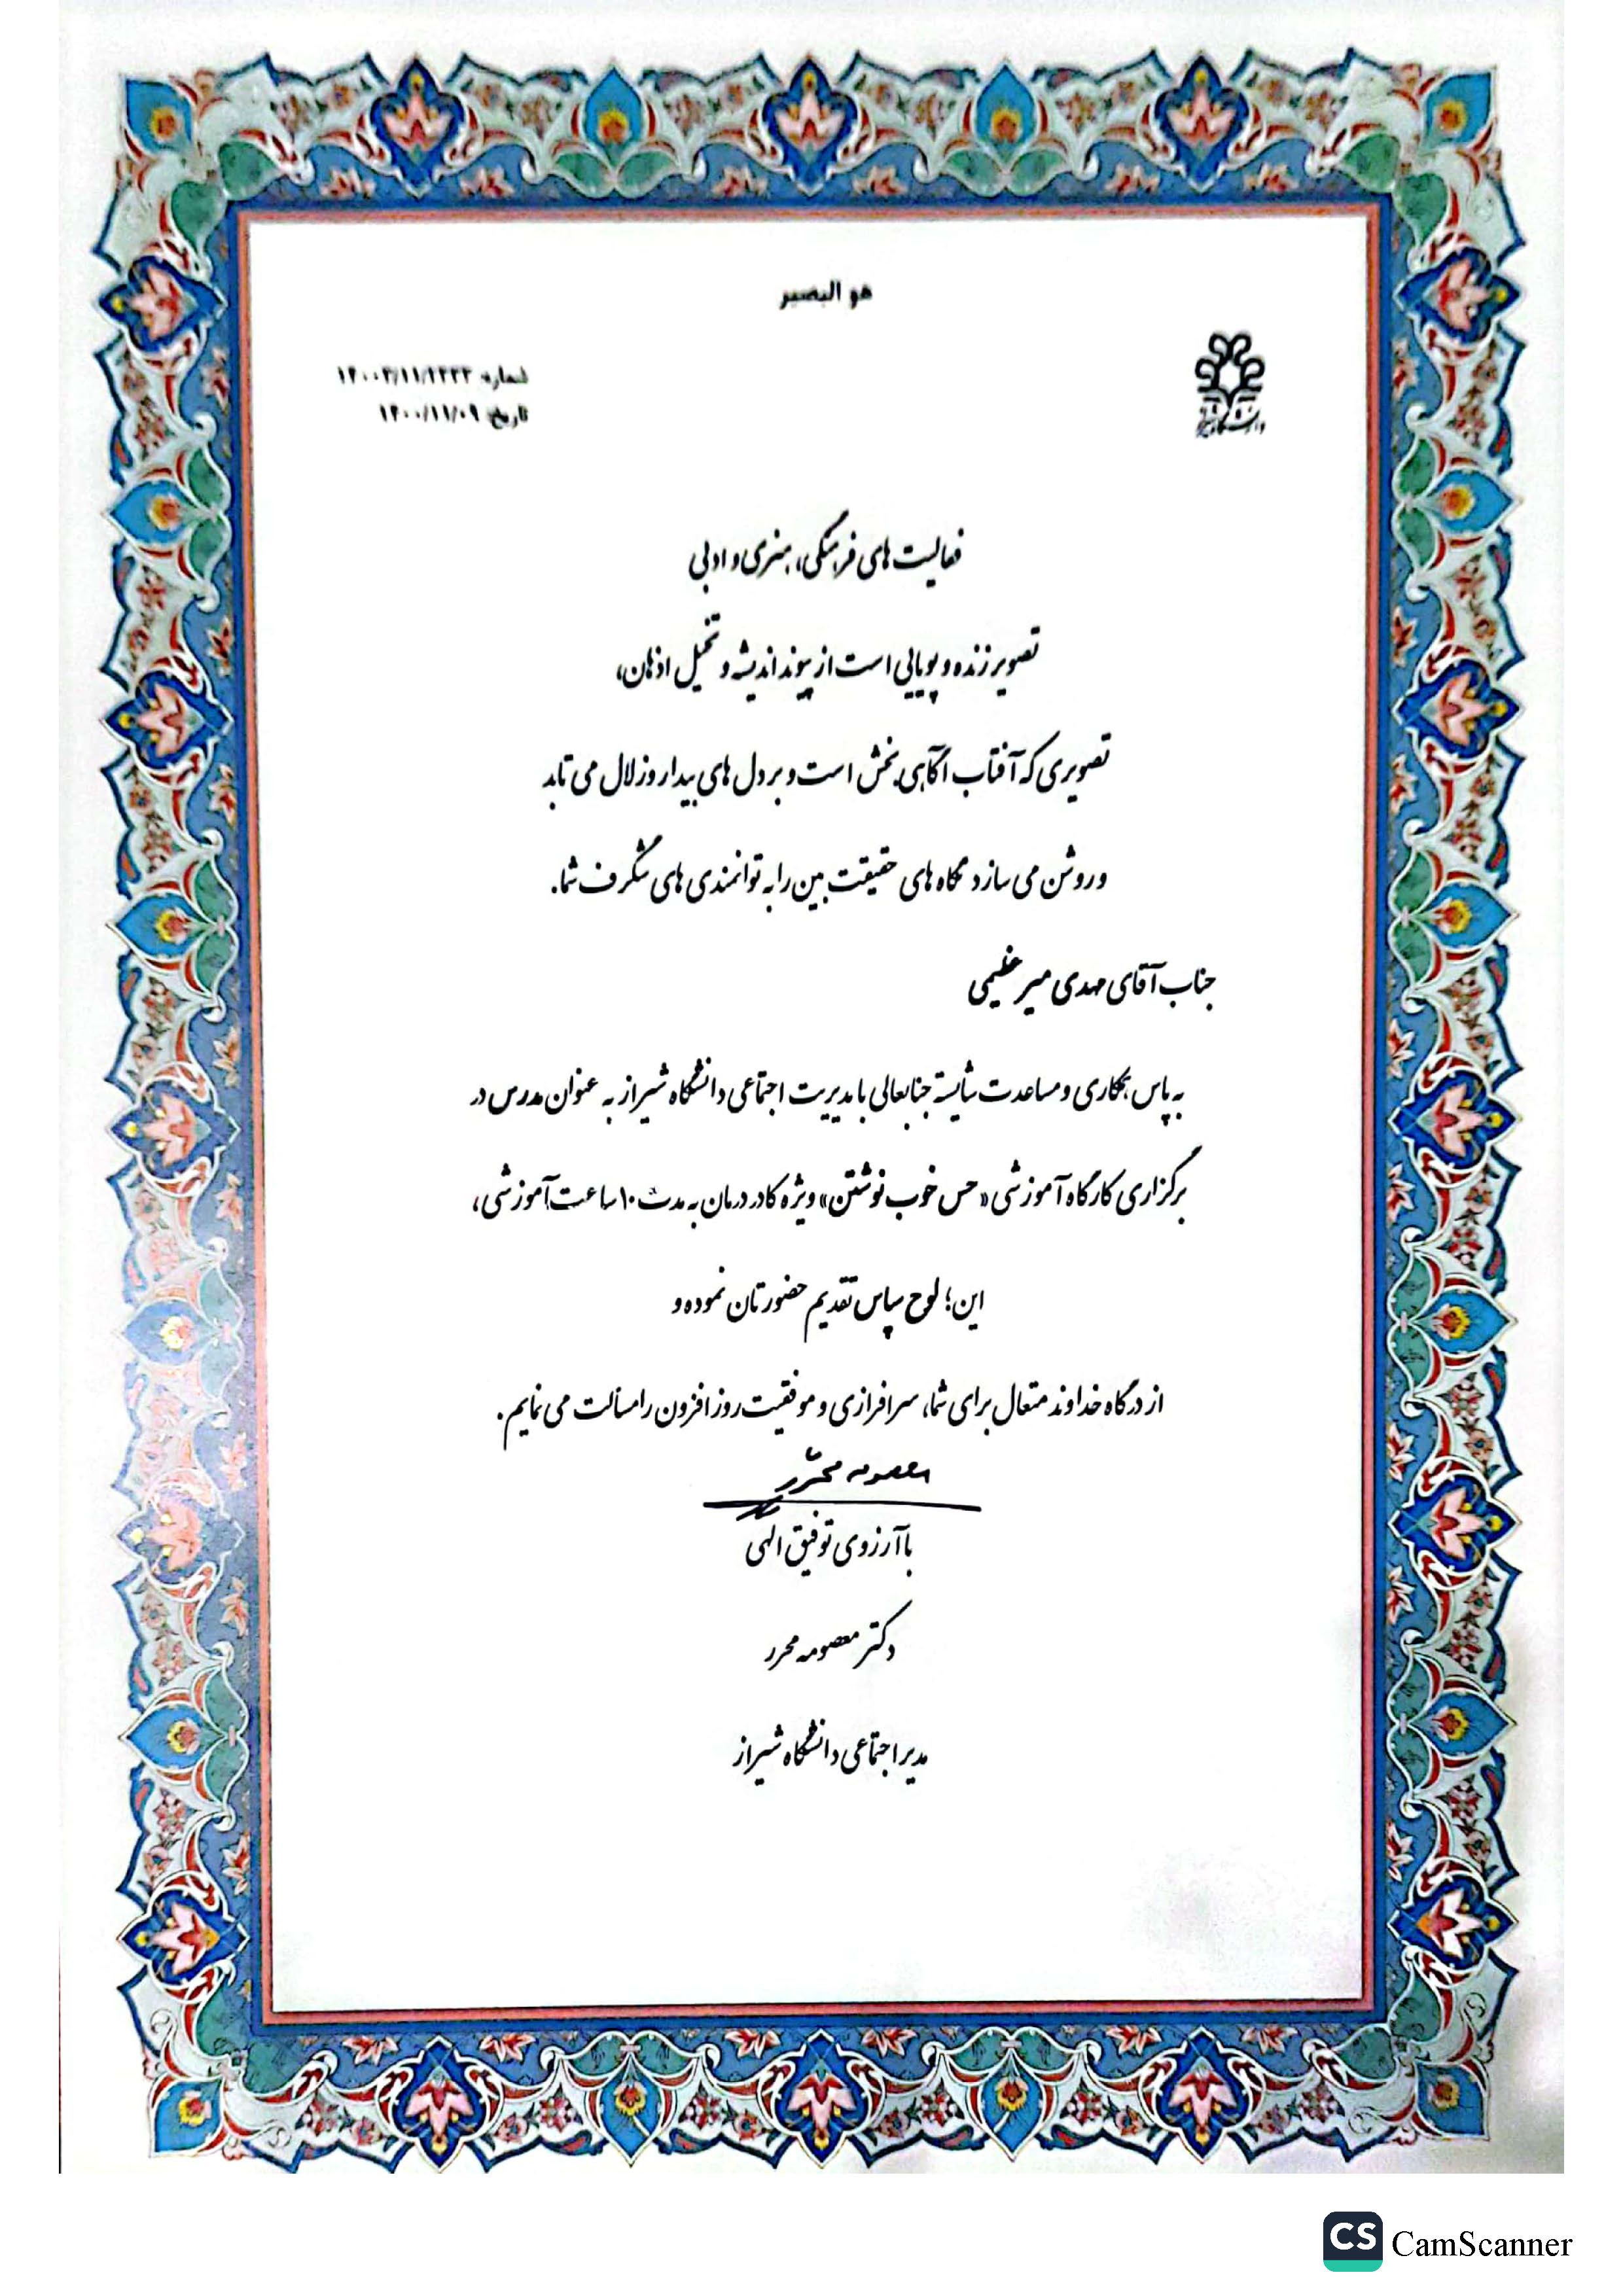 هو البصیر
دانشگاه شیراز
شماره: ۱۴۰۰۳/۱۱/۲۲۳۳
تاریخ: ۱۴۰۰/۱۱/۰۹
فعالیت های فرهنگی، هنری و ادبی
تصویر زنده و پویایی است از پیوند اندیشه و تخیل اذهان،
تصویری که آفتاب آگاهی بخش است و بر دل های بیدار و زلال می تابد
و روشن می سازد نگاه های حقیقت بین را به توانمندی های شگرف شما.
جناب آقای مهدی میر عظیمی
به پاس همکاری و مساعدت شایسته جنابعالی با مدیریت اجتماعی دانشگاه شیراز به عنوان مدرس در
برگزاری کارگاه آموزشی «حس خوب نوشتن» ویژه کادر درمان به مدت ۱۰ ساعت آموزشی،
این؛ لوح سپاس تقدیم حضورتان نموده و
از درگاه خداوند متعال برای شما، سرافرازی و موفقیت روز افزون را مسألت می نمایم.
معصومه محرر
با آرزوی توفیق الهی
دکتر معصومه محرر
مدیر اجتماعی دانشگاه شیراز
CS CamScanner